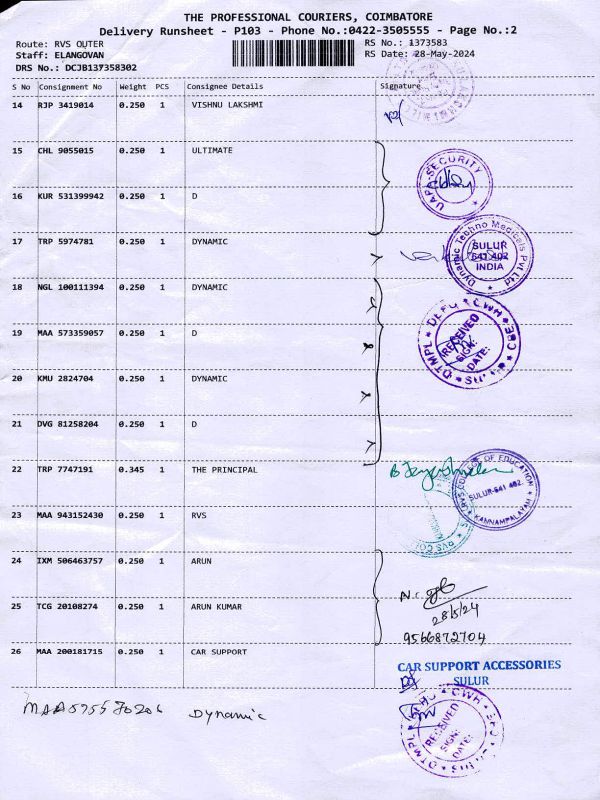 THE PROFESSIONAL COURIERS, COIMBATORE
Delivery Runsheet - P103 - Phone No.:0422-3505555 - Page No.:2
Route: RVS OUTER
RS No.: 1373583
Staff: ELANGOVAN
RS Date: 28-May-2024
DRS No.: DCJB137358302
S No Consignment No Weight PCS Consignee Details Signature
14 RJP 3419014 0.250 1 VISHNU LAKSHMI
15 CHL 9055015 0.250 1 ULTIMATE
UAP-SECURITY
16 KUR 531399942 0.250 1 D
17 TRP 5974781 0.250 1 DYNAMIC
Dynamic Techno Medicals Pvt Ltd
SULUR
641 402
INDIA
18 NGL 100111394 0.250 1 DYNAMIC
19 MAA 573359057 0.250 1 D
DTMPL DEPO CWH CBE
RECEIVED
SIGN:
DATE:
20 KMU 2824704 0.250 1 DYNAMIC
21 DVG 81258204 0.250 1 D
22 TRP 7747191 0.345 1 THE PRINCIPAL
COLLEGE OF EDUCATION
SULUR-641 402.
KANNAMPALAYAM
23 MAA 943152430 0.250 1 RVS
24 IXM 506463757 0.250 1 ARUN
25 TCG 20108274 0.250 1 ARUN KUMAR
28/5/24
9566872704
26 MAA 200181715 0.250 1 CAR SUPPORT
CAR SUPPORT ACCESSORIES
SULUR
Dynamic
DTMPL CWH CBE
RECEIVED
SIGN:
DATE: